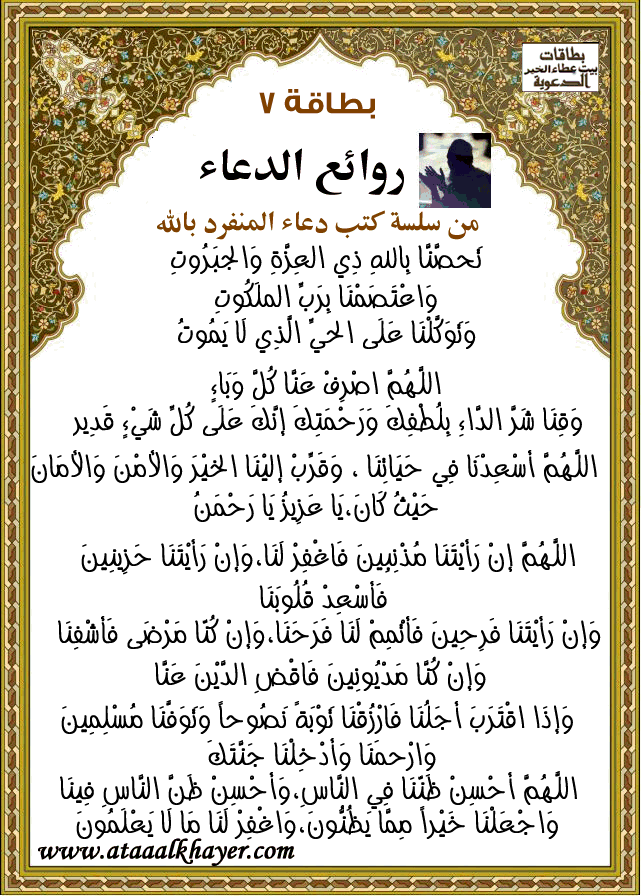 بطاقات
بيت عطاء الخير
الدعوية
بطاقة ٧
روائع الدعاء
من سلسة كتب دعاء المنفرد بالله
تَحصَّنَّا بِاللهِ ذِي العِزَّةِ وَالجَبَرُوتِ
وَاعْتَصَمْنَا بِرَبِّ الملَكُوتِ
وَتَوَكَّلْنَا عَلَى الحيِّ الَّذِي لَا يَمُوتُ
اللَّهُمَّ اصْرِفْ عَنَّا كُلَّ وَبَاءٍ
وَقِنَا شَرَّ الدَّاءِ بِلُطْفِكَ وَرَحْمَتِكَ إنَّكَ عَلَى كُلِّ شَيْءٍ قَدِير
اللَّهُمَّ أسْعِدْنَا فِي حَيَاتِنَا ، وَقَرِّبْ إلَيْنَا الخيْرَ وَالأمْنَ وَالأمَانَ
حَيْثُ كَانَ،يَا عَزِيزُ يَا رَحْمَنُ
اللَّهُمَّ إنْ رَأيْتَنَا مُذْنِبِينَ فَاغْفِرْ لَنَا،وَإنْ رَأيْتَنَا حَزِينِينَ
فَأسْعِدْ قُلُوبَنَا
وَإنْ رَأيْتَنَا فَرِحِينَ فَأتْمِمْ لَنَا فَرَحَنَا،وَإنْ كُنَّا مَرْضَى فَأشْفِنَا
وَإنْ كُنَّا مَدْيُونِينَ فَاقْضِ الدَّيْنَ عَنَّا
وَإذَا اقْتَرَبَ أجَلُنَا فَارْزُقْنَا تَوْبَةً نَصُوحاً وَتَوَفَّنَا مُسْلِمِينَ
وَارْحمَنَا وَأدْخِلْنَا جَنَّتَكَ
اللَّهُمَّ أحْسِنْ ظَنَّنَا فِي النَّاسِ،وَأحْسِنْ ظَنَّ النَّاسِ فِينَا
وَاجْعَلْنَا خَيْراً مِمَّا يَظُنُّونَ،وَاغْفِرْ لَنَا مَا لَا يَعْلَمُونَ
www.ataaalkhayer.com